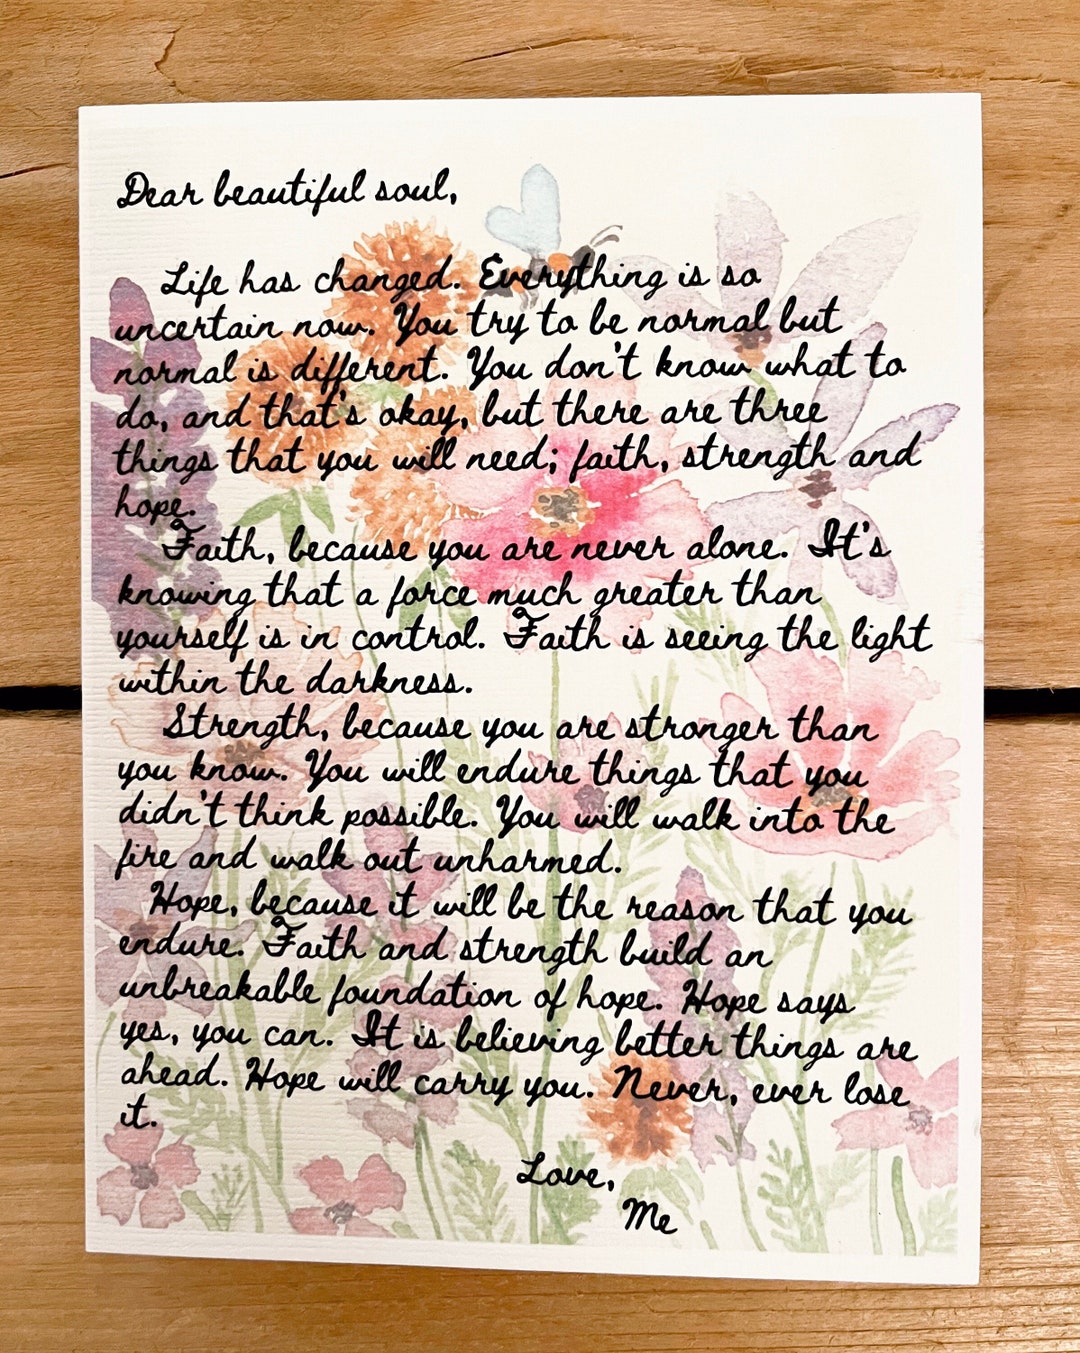 Dear beautiful soul,
Life has changed. Everything is so
uncertain now. You try to be normal but
normal is different. You don't know what to
do, and that's okay, but there are three
things that you will need; faith, strength and
hope.
Faith, because you are never alone. It's
knowing that a force much greater than
yourself is in control. Faith is seeing the light
within the darkness.
Strength, because you are stronger than
you know. You will endure things that you
didn't think possible. You will walk into the
fire and walk out unharmed.
Hope, because it will be the reason that you
endure. Faith and strength build an
unbreakable foundation of hope. Hope says
yes, you can. It is believing better things are
ahead. Hope will carry you. Never, ever lose
it.
Love,
Me